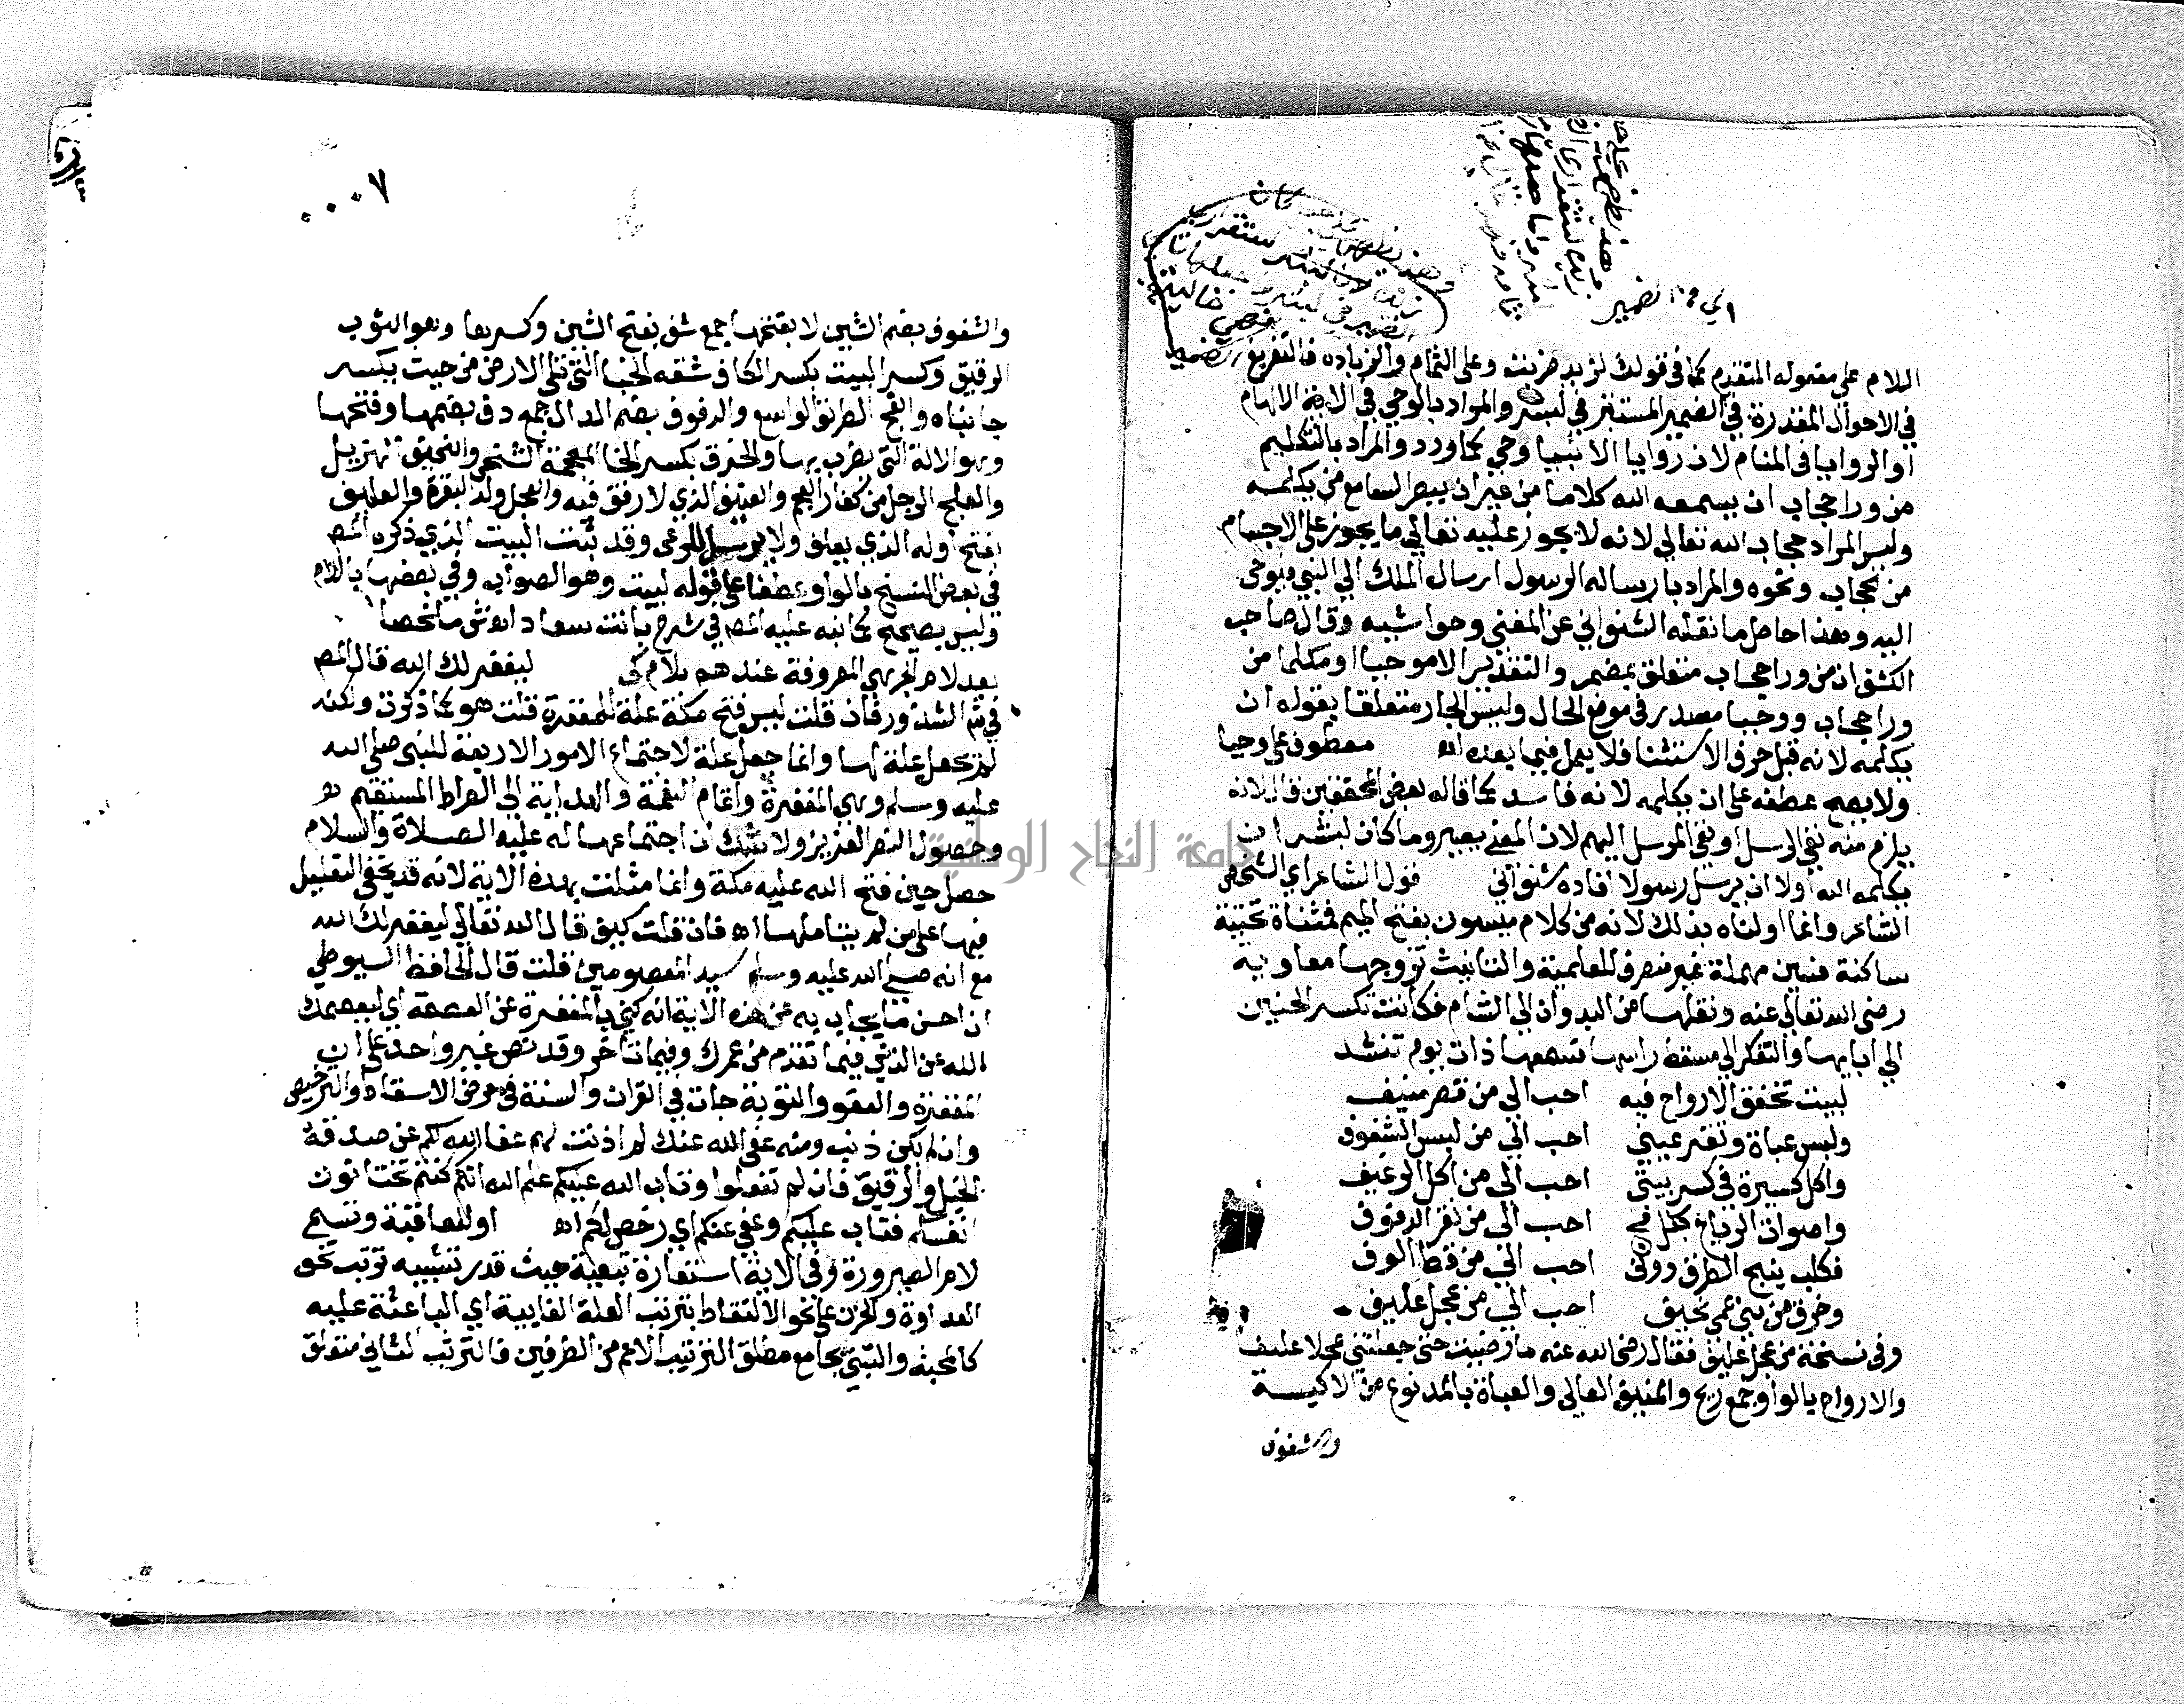 اللام على معموله المتقدم كما في قولك لزيد ضربت وعلى التمام والزيادة فالتفريغ
في الاحوال المقدرة في الضمير المستتر في لبشر والمراد بالوحي في الاية الالهام
او الرويا في المنام لان رويا الانبيا وحي كما ورد والمراد بالتكليم
من ورا حجاب ان يسمعه الله كلاما من غير ان يبصر السامع من يكلمه
وليس المراد حجاب الله تعالى لانه لا يجوز عليه تعالى ما يجوز على الاجسام
من حجاب ونحوه والمراد بارساله الرسول ارسال الملك الى النبي فيوحى
اليه وهذا حاصل ما نقله الشنواني عن المغني وحواشيه وقال صاحب
الكشف ان من ورا حجاب متعلق بمضمر والتقدير الا موحيا او مكلما من
ورا حجاب ووحيا مصدر في موضع الحال وليس الجار متعلقا بقوله ان
يكلمه لانه قبل حرف الاستثنا فلا يعمل فيما بعده اه معطوف على وحيا
ولا يصح عطفه على ان يكلمه لانه فاسد كما قاله بعض المحققين قال لانه
يلزم منه نفي الرسل او نفي المرسل اليهم لان المعنى يصير وما كان لبشر ان
يكلمه الله اولا ان يرسل رسولا افاده شنواني قول الشاعر اي الشخص
الشاعر وانما اولناه بذلك لانه من كلام ميسون بفتح الميم فمثناة تحتية
ساكنة فسين مهملة غير منصرف للعلمية والتانيث تزوجها معاويه
رضي الله تعالى عنه ونقلها من البدو ان الى الشام فكانت تكسر الحنين
الى ابايها والتفكر الى مسقط راسها فسمعها ذات يوم تنشد
لبيت تخفق الارواح فيه احب الي من قصر منيف
ولبس عباة وتقر عيني احب الي من لبس الشفوف
واكل كسيرة في كسر بيتي احب الي من اكل الرغيف
واصوات الرياح بكل فج احب الي من نقر الدفوف
فكلب ينبح الطراق دوني احب الي من قط الوف
وخرق من بني عمي نحيف احب الي من عجل عليف
وفي نسخة من عجل عليف فقال رضي الله عنه ما رضيت حتى جعلتني عجلا عليفا
والارواح بالواو جمع ريح والمنيف العالي والعباة بالمد نوع من الاكيسة
والشفوف
٠٠٠٧
والشفوف بضم الشين لا بفتحها جمع شف بفتح الشين وكسرها وهو الثوب
الرقيق وكسر البيت بكسر الكاف شقه الخبا التي تلي الارض من حيث يكسر
جانباه والفج الطريق الواسع والدفوف بضم الدال جمع دف بضمها وفتحها
وهو الالة التي يضرب بها والخرق بكسر الخا المعجمة الشخص والنحيف الهزيل
والعلج الرجل من كفار العجم والعنيف الذي لا رفق فيه والعجل ولد البقرة والعليف
بفتح اوله الذي يعلف ولا يرسل للرعى وقد ثبت البيت الذي ذكره المص
في بعض النسخ بالواو عطفا على قوله لبيت وهو الصواب وفي بعضها باللام
وليس بصحيح كما نبه عليه المص في شرح بانت سعاد اه ش ملخصا
بعد لام الجر هي المعروفة عندهم بلام كي ليغفر لك الله قال المص
في ش الشذور فان قلت ليس فتح مكة علة للمغفرة قلت هو كما ذكرت ولكنه
لم يجعل علة لها وانما جعل علة لاجتماع الامور الاربعة للنبي صلى الله
عليه وسلم وهي المغفرة واتمام النعمة والهداية الى الصراط المستقيم
وحصول النصر العزيز ولا شك ان اجتماعها له عليه الصلاة والسلام
حصل حين فتح الله عليه مكة وانما مثلت بهذه الاية لانه قد يخفى التعليل
فيها على من لم يتاملها اه فان قلت كيف قال الله تعالى ليغفر لك الله
مع انه صلى الله عليه وسلم سيد المعصومين قلت قال الحافظ السيوطي
ان احسن ما يجاب به عن هذه الاية انه كنى بالمغفرة عن العصمة اي ليعصمك
الله عن الذنب فيما تقدم من عمرك وفيما تاخر وقد نص غير واحد على ان
المغفرة والعفو والتوبة جات في القران والسنة في معرض الاسقاط والترخيص
وان لم يكن ذنب ومنه عفى الله عنك لم اذنت لهم عفا الله لكم عن صدقة
الخيل والرقيق فان لم تفعلوا وتاب الله عليكم علم الله انكم كنتم تختانون
انفسكم فتاب عليكم وعفى عنكم اي رخص لكم اه او للعاقبة وتسمى
لام الصيرورة وفي الاية استعارة تبعية حيث قدر تشبيه ترتب نحو
العداوة والحزن على نحو الالتقاط بترتب العلة الغايية اي الباعثة عليه
كالمحبة والتبني بجامع مطلق الترتيب الاعم من الطرفين فالترتب الثاني متعلق
جامعة النجاح الوطنية